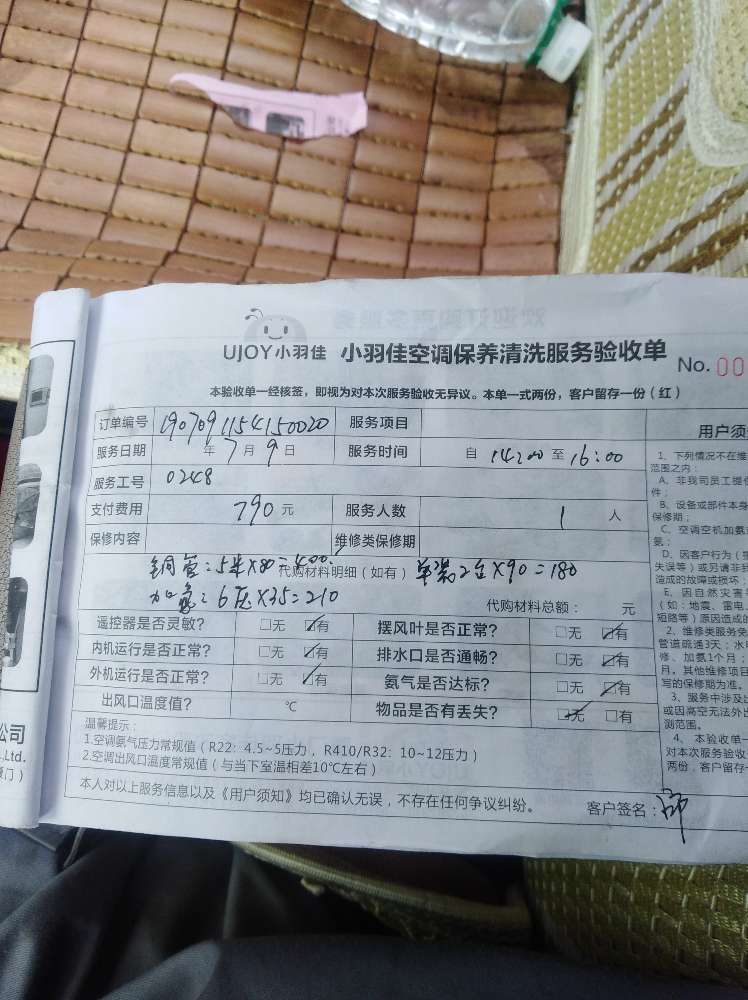 UJOY小羽佳 小羽佳空调保养清洗服务验收单 No. 00
本验收单一经核签，即视为对本次服务验收无异议。本单一式两份，客户留存一份（红）
订单编号 1907091154150020 服务项目
服务日期 年 7 月 9 日 服务时间 自 14:00 至 16:00
服务工号 0248
支付费用 790 元 服务人数 1 人
保修内容 维修类保修期
铜管：5米×80=400
代购材料明细（如有） 单装2台×90=180
加氨：6压×35=210
代购材料总额： 元
遥控器是否灵敏？ □无 □有 摆风叶是否正常？ □无 □有
内机运行是否正常？ □无 □有 排水口是否通畅？ □无 □有
外机运行是否正常？ □无 □有 氨气是否达标？ □无 □有
出风口温度值？ ℃ 物品是否有丢失？ □无 □有
温馨提示：
1.空调氨气压力常规值（R22：4.5~5压力，R410/R32：10~12压力）
2.空调出风口温度常规值（与当下室温相差10℃左右）
本人对以上服务信息以及《用户须知》均已确认无误，不存在任何争议纠纷。
客户签名：
用户须
1、下列情况不在维
范围之内：
A、非我司员工提供
件；
B、设备或部件本身
保修期；
C、空调空机加氨
氨；
D、因客户行为（
失误等）或另请非我
造成的故障或损坏
E、因自然灾害
（如：地震、雷电、
短路等）原因造成的
2、维修类服务免
管道疏通3天；水
修、加氨1个月；
月。其他维修项目
写的保修期为准。
3、服务中涉及
或因高空无法外出
测范围。
4、本验收单一
对本次服务验收
两份，客户留存一
公司
.,Ltd.
厦门）